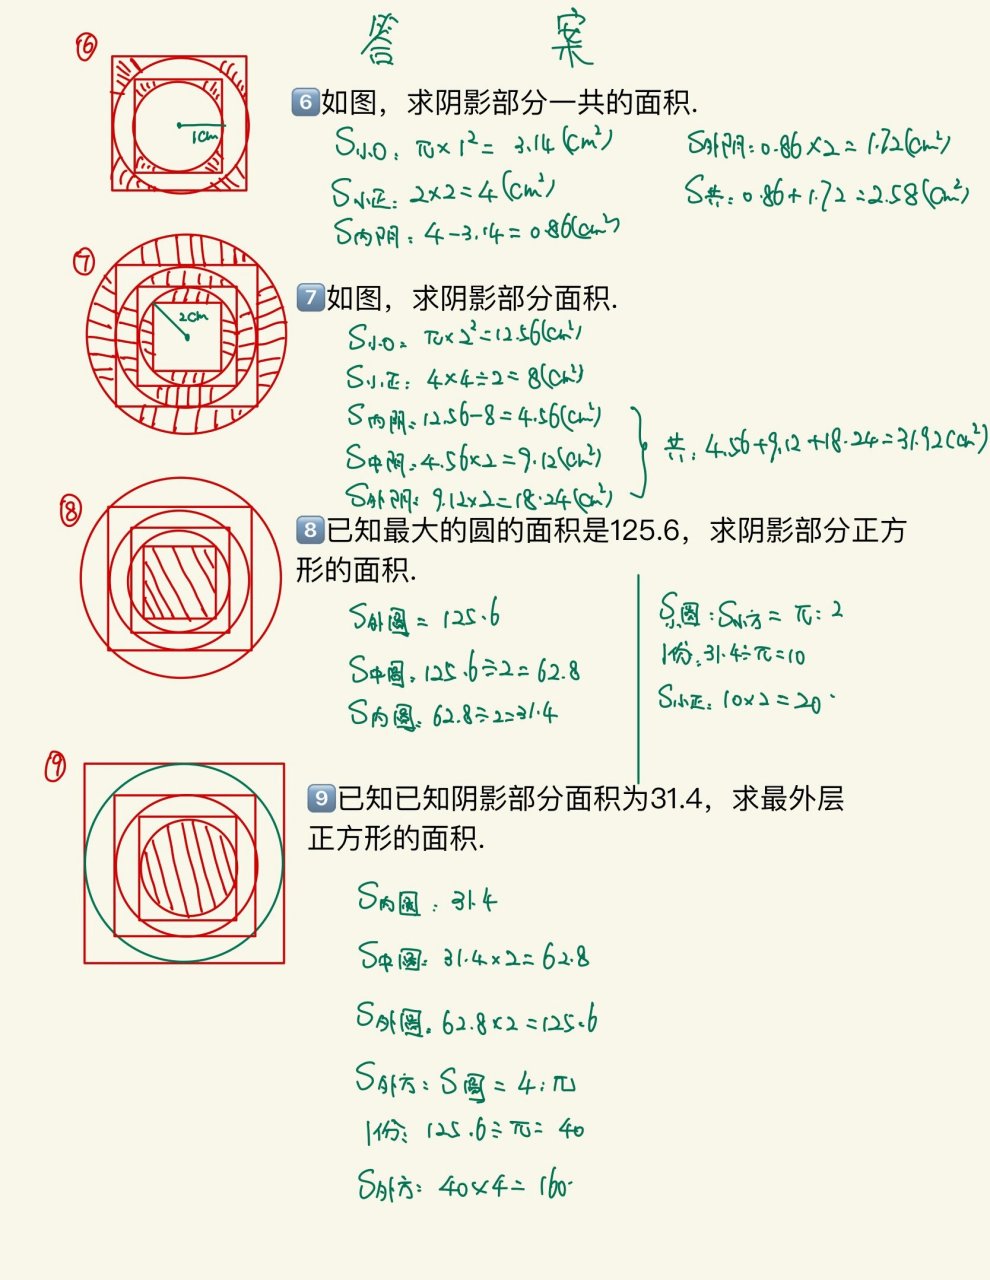 答 案
⑥
1cm
6 如图，求阴影部分一共的面积.
S小O：π×1²= 3.14(cm²)
S小正：2×2=4(cm²)
S内阴：4-3.14=0.86(cm²)
S外阴：0.86×2=1.72(cm²)
S共：0.86+1.72=2.58(cm²)
⑦
2cm
7 如图，求阴影部分面积.
S小O：π×2²=12.56(cm²)
S小正：4×4÷2=8(cm²)
S内阴：12.56-8=4.56(cm²)
S中阴：4.56×2=9.12(cm²)
S外阴：9.12×2=18.24(cm²)
共：4.56+9.12+18.24=31.92(cm²)
⑧
8 已知最大的圆的面积是125.6，求阴影部分正方
形的面积.
S外圆 = 125.6
S中圆：125.6÷2=62.8
S内圆：62.8÷2=31.4
S小圆：S小方= π:2
1份：31.4÷π=10
S小正：10×2=20
⑨
9 已知已知阴影部分面积为31.4，求最外层
正方形的面积.
S内圆：31.4
S中圆：31.4×2=62.8
S外圆：62.8×2=125.6
S外方：S圆= 4:π
1份：125.6÷π= 40
S外方：40×4=160